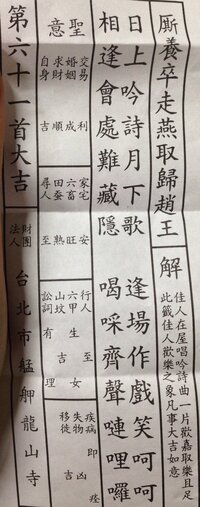 廝養卒走燕取歸趙王
解
佳人在屋唱吟詩曲一片歡嘉取樂且足
此籤佳人歡樂之象凡事大吉如意
日上吟詩月下歌
逢場作戲笑呵呵
相逢會處難藏隱
喝啋齊聲嗹哩囉
聖意
交易 利
婚姻 成
求財 順
自身 吉
家宅 安
六畜 旺
田蚕 熟
尋人 至
行人 至
六甲 生女
山墳 吉
訟詞 有理
疾病 即痊
失物 凶
移徙 吉
第六十一首大吉
財團法人
台北市艋舺龍山寺